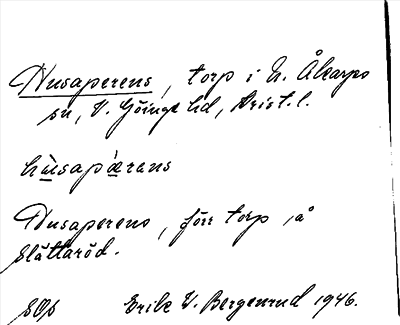 Husaperens, torp i N. Åkarps
sn, V. Göinge hd, Krist. l.
hùsapǽrəns
Husaperens, förr torp, å
Slättaröd.
Erik V. Bergenrud 1946.